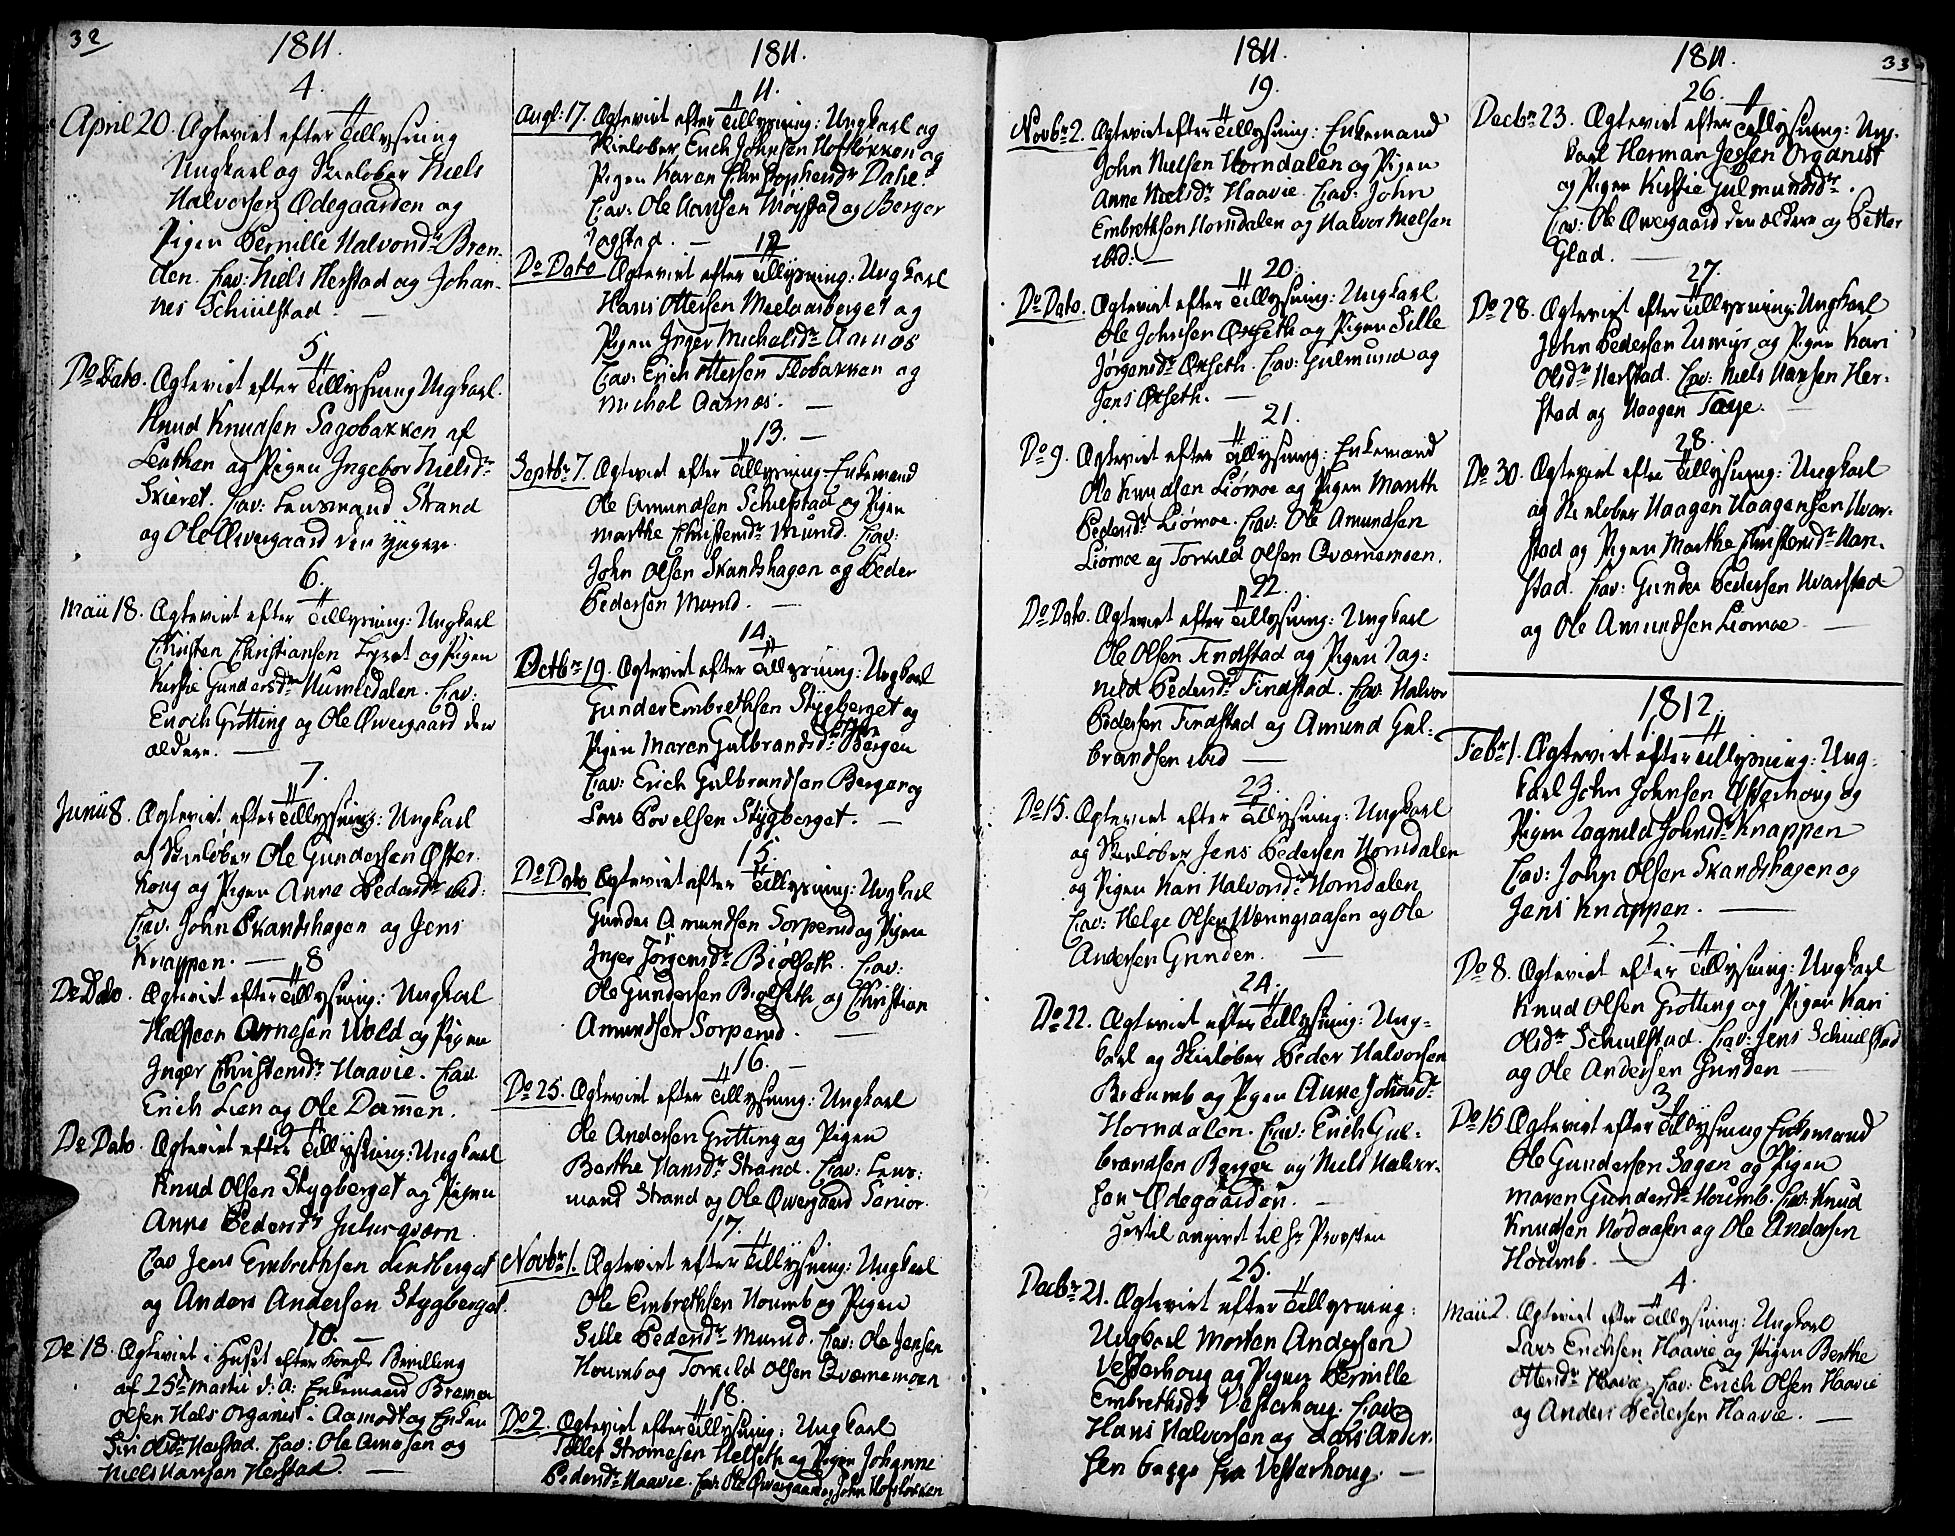 32
1811.
4.
April 20. Ægteviet efter Tillysning
Ungkarl og Skieløber Niels
Halvorsen Ødegaarden og
Pigen Pernille Halvorsdr Bren-
den. Cav: Niels Herstad og Johan-
nes Schiulstad. —
5
Do Dato. Ægteviet efter Tillysning Ungkarl
Knud Knudsen Sagobakken af
og Pigen Ingebor Nielsdr
Skieret. Cav: Lensmand Strand
og Ole Øwergaard den yngere.
6.
Maii 18. Ægteviet efter Tillysning: Ungkarl
Christen Christiansen Lyret og Pigen
Kirstie Gundersdr Humledalen. Cav:
Enoch Grøtting og Ole Øwergaard den
ældere. —
7.
Junii 8. Ægteviet efter Tillysning: Ungkarl
og Skieløber Ole Gundersen Øster-
houg og Pigen Anne Pedersdr ibid:
Cav: John Skandshagen og Jens
Knappen. —
8
Do Dato. Ægteviet efter Tillysning: Ungkarl
Halsteen Arnesen Wold og Pigen
Inger Christensdr Haavie. Cav.
Erich Lien og Ole Dammen.
9
Do Dato. Ægteviet efter Tillysning: Ungkarl
Knud Olsen Stygberget og Pigen
Anne Pedersdr Julusqværn.
Cav Jens Embrethsen Lindberget
og Anders Andersen Stygberget.
10. —
Do 18. Ægteviet i Huset efter Kongl: Bevilling
af 25de Martii d: A: Enkemand Bremer
Olsen Hals Organist i Aamodt og Enken
Siri Olsdr Herstad. Cav: Ole Arnesen og
Niels Hansen Herstad. —
1811.
11.
Augl: 17. Ægteviet efter Tillysning: Ungkarl og
Skieløber Erich Johnsen Hofløkken og
Pigen Karen Christophersdr Dahl.
Cav: Ole Hansen Møystad og Berger
Togstad. —
12
Do Dato Ægteviet efter Tillysning: Ungkarl
Hans Ottersen Meelaasberget og
Pigen Inger Michelsdr Aarnæs
Cav: Erich Ottersen Flobakken og
Michel Aarnæs. —
13. —
Septbr 7. Ægteviet efter Tillysning Enkemand
Ole Amundsen Schiefstad og Pigen
Marthe Christensdr Mund. Cav:
John Olsen Skandshagen og Peder
Pedersen Mund. —
14.
Octbr 19. Ægteviet efter Tillysning: Ungkarl
Gunder Embrethsen Stygberget og
Pigen Maren Gulbrandsdr Bergen
Cav: Erich Gulbrandsen Berger og
Lars Povelsen Stygberget. —
15.
Do Dato Ægteviet efter Tillysning: Ungkarl
Gunder Amundsen Sorperud og Pigen
Inger Jørgensdr Biølseth. Cav:
Ole Gundersen Biølseth og Christian
Amundsen Sorperud. —
16. —
Do 25. Ægteviet efter Tillysning: Ungkarl
Ole Andersen Grøtting og Pigen
Berthe Hansdr Strand. Cav: Lens-
mand Strand og Ole Øwergaard Senior.
17.
Novbr 1. Ægteviet efter Tillysning: Ungkarl
Ole Embrethsen Houmb og Pigen
Sille Pedersdr Mund. Cav: Ole Jensen
Houmb og Torkild Olsen Qvernemoen
18.
Do 2. Ægteviet efter Tillysning: Ungkarl
Tollef Strømesen Helseth og Pigen Johanne
Pedersdr Haavie. Cav: Ole Øwergaard og John Hofsløkken
1811.
19.
Novbr 2. Ægteviet efter Tillysning: Enkemand
John Nielsen Horndalen og Pigen
Anne Nielsdr Haavie. Cav: John
Embrethsen Horndalen og Halvor Nielsen
ibid: —
20.
Do Dato. Ægteviet efter Tillysning: Ungkarl
Ole Johnsen Øxseth og Pigen Sille
Jørgensdr Øxseth. Cav: Gulmund og
Jens Øxseth. —
21.
Do 9. Ægteviet efter Tillysning: Enkemand
Ole Knudsen Liømoe og Pigen Marth
Pedersdr Liømoe. Cav: Ole Amundsen
Liømoe og Torkild Olsen Qværnemoen.
22.
Do Dato. Ægteviet efter Tillysning: Ungkarl
Ole Olsen Findstad og Pigen Rag-
nild Pedersdr Findstad. Cav: Halvor
Pedersen Findstad og Amund Gul-
brandsen ibid —
23.
Do 15. Ægteviet efter Tillysning: Ungkarl
og Skieløber Jens Pedersen Horndalen
og Pigen Kari Halvorsdr Horndalen
Cav: Helge Olsen Wæringsaasen og Ole
Andersen Grinden. —
24.
Do 22. Ægteviet efter Tillysning: Ung-
karl og Skieløber Peder Halvorsen
Bræumb og Pigen Anne Johnsdr
Horndalen. Cav: Erich Gul-
brandsen Berger og Niels Halvor-
sen Ødegaarden. —
hertil angivet til Hr Provsten
25.
Decbr 21. Ægteviet efter Tillysning:
Ungkarl Morten Andersen
Vesterhoug og Pigen Pernille
Embrethsdr Vesterhoug. Cav:
Hans Halvorsen og Lars Ander-
sen begge fra Vesterhoug. —
33
1811.
26.
Decbr 23. Ægteviet efter Tillysning: Ung-
karl Herman Jessen Organist
og Pigen Kirstie Gulmundsdr.
Cav: Ole Øwergaard den ældere og Petter
Glad. —
27.
Do 28. Ægteviet efter Tillysning: Ungkarl
John Pedersen Rumyr og Pigen Kari
Olsdr Herstad. Cav: Niels Hansen Her-
stad og Haagen Taxe. —
28.
Do 30. Ægteviet efter Tillysning: Ungkarl
og Skieløber Haagen Haagensen Hvar-
stad og Pigen Marthe Christensdr Han-
stad. Cav: Gunder Pedersen Hvarstad
og Ole Amundsen Liømoe —
1812.
1.
Febr 1. Ægteviet efter Tillysning: Ung-
karl John Johnsen Østerhoug og
Pigen Ragnild Johnsdr Knappen
Cav: John Olsen Skandshagen og
Jens Knappen. —
2.
Do 8. Ægteviet efter Tillysning: Ungkarl
Knud Olsen Grøtting og Pigen Kari
Olsdr Schiulstad. Cav: Jens Schiulstad
og Ole Andersen Grinden —
3.
Do 15 Ægteviet efter Tillysning Enkemand
Ole Gundersen Sagen og Pigen
Maren Gundersdr Houmb. Cav: Knud
Knudsen Nordaasen og Ole Andersen
Houmb. —
4.
Maii 2. Ægteviet efter Tillysning: Ungkarl
Lars Erichsen Haavie og Pigen Berthe
Ottersdr Haavie. Cav: Erich Olsen Haavie
og Anders Pedersen Haavie. —